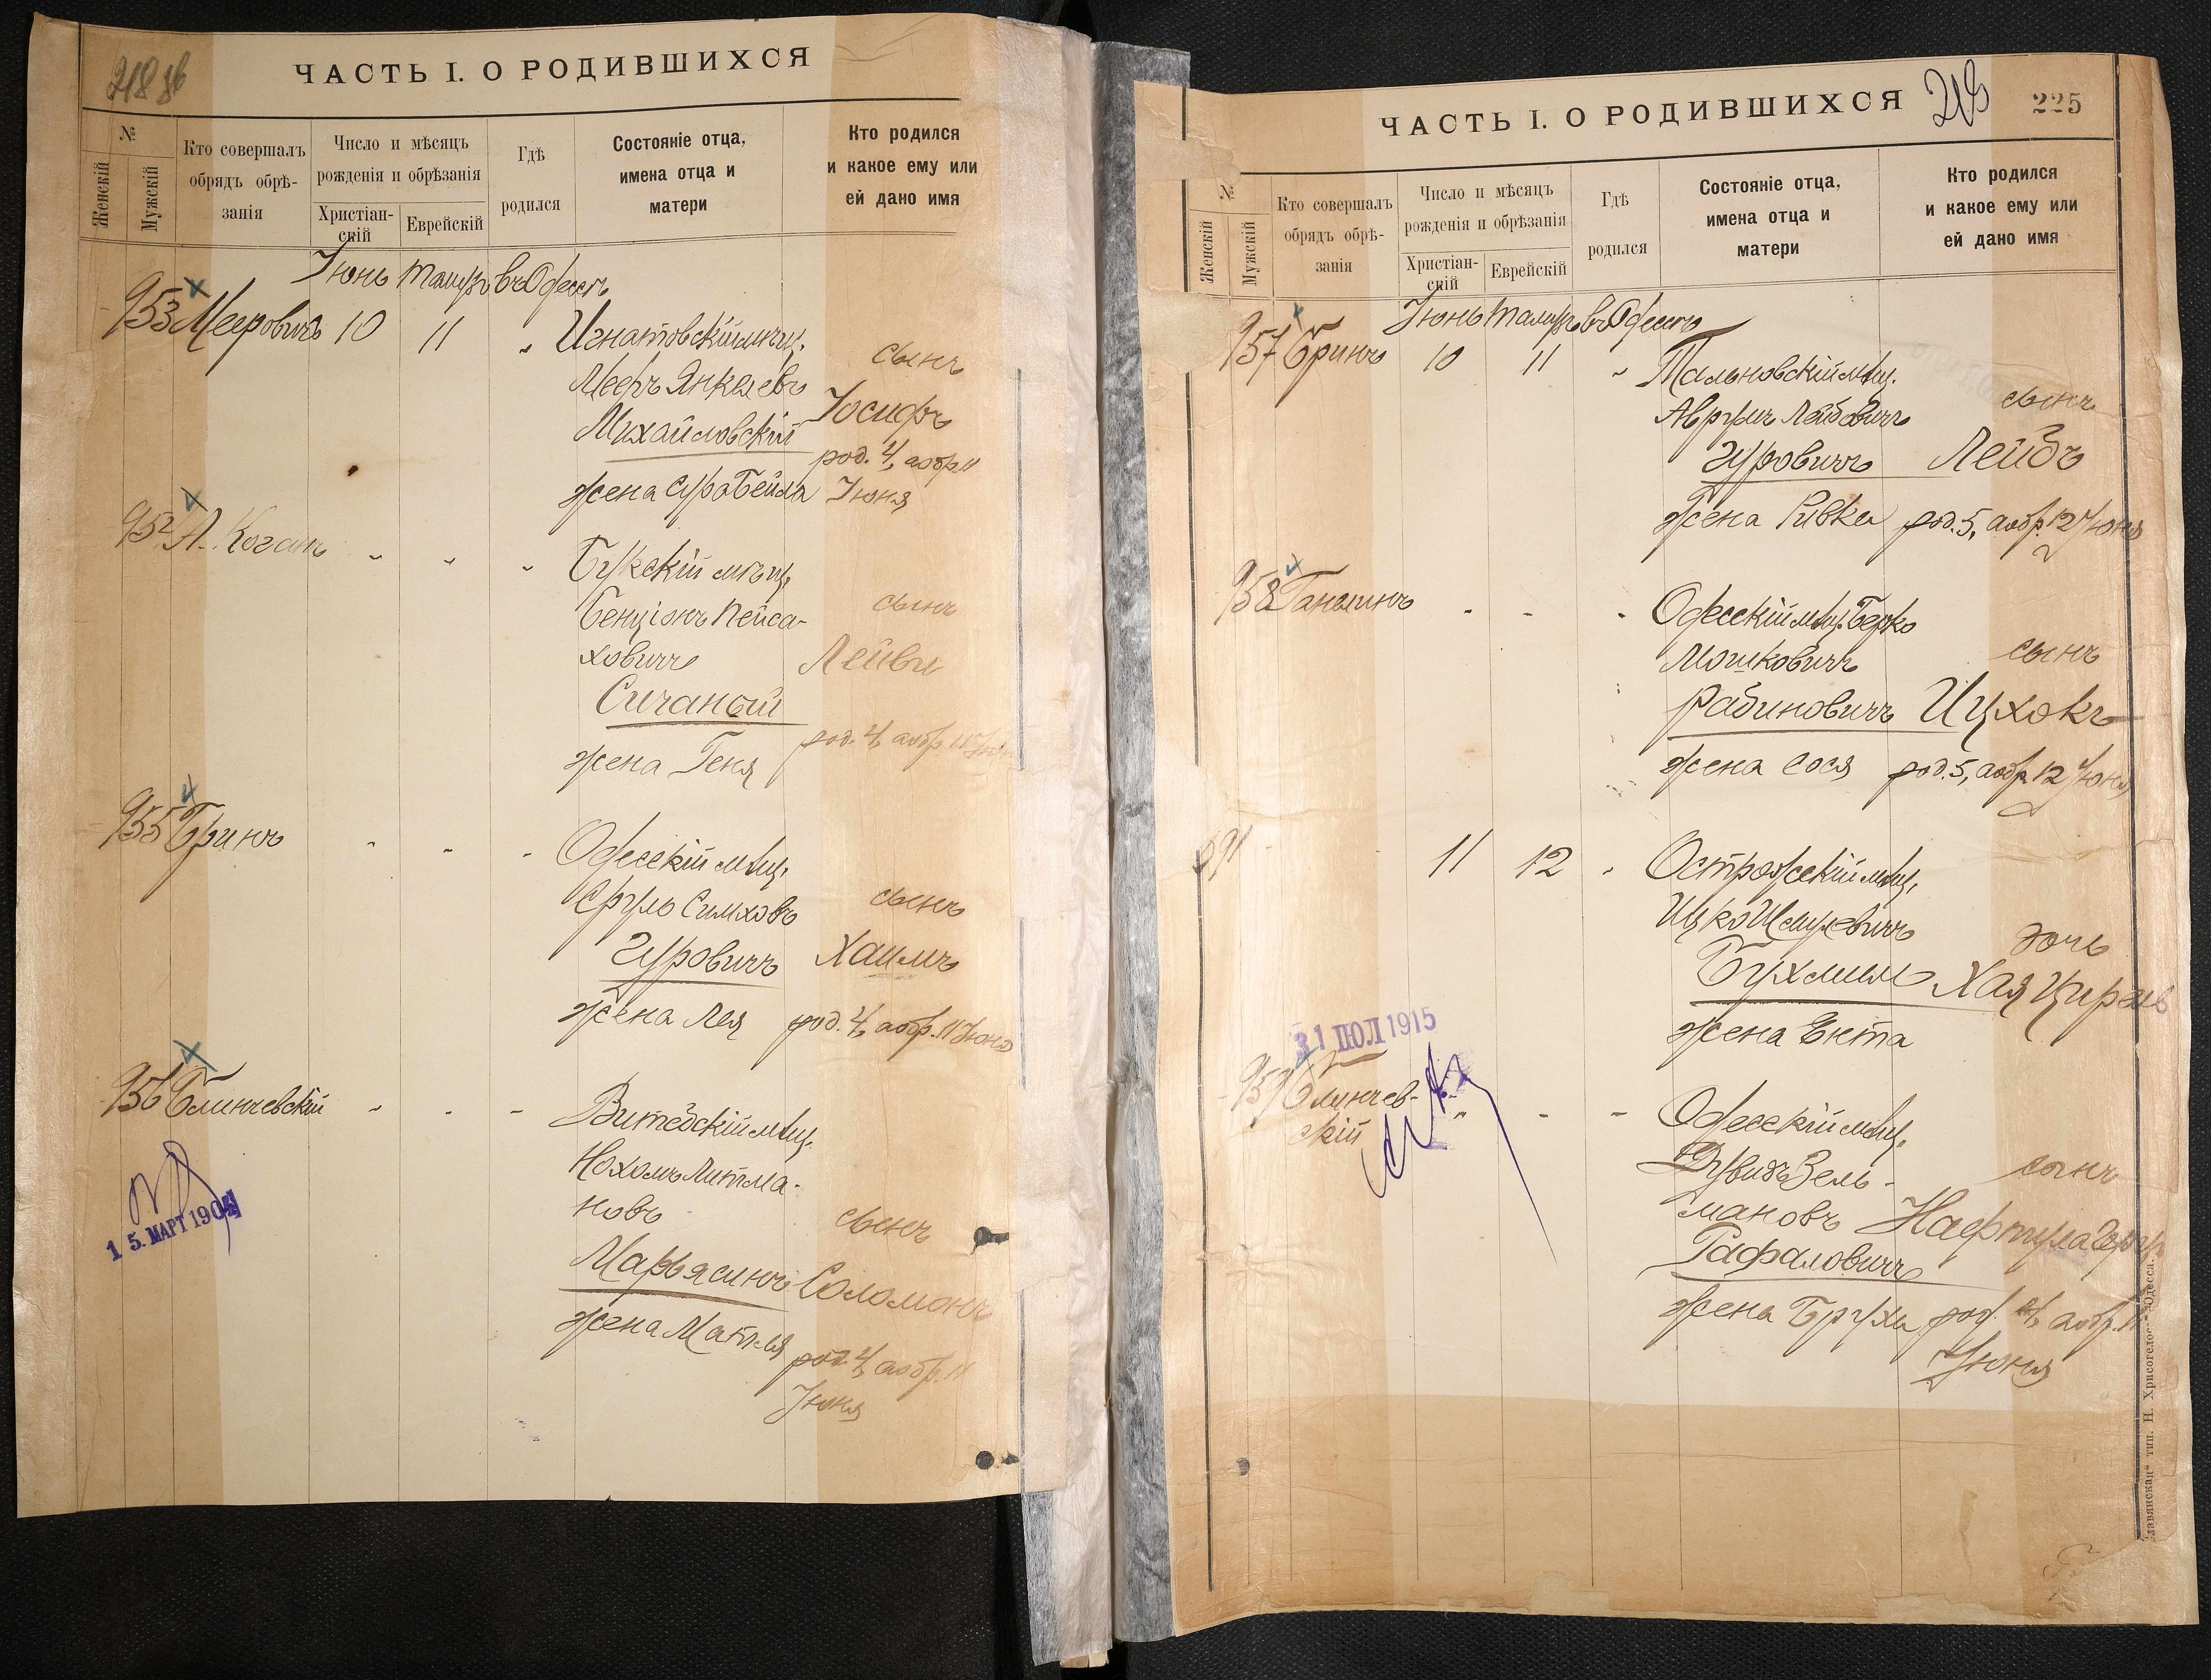 ЧАСТЬ I. О РОДИВШИХСЯ
№
Женскій
Мужскій
Кто совершалъ
обрядъ обрѣ-
занія
Число и мѣсяцъ
рожденія и обрѣзанія
Христіан-
скій
Еврейскій
Гдѣ
родился
Состояніе отца,
имена отца и
матери
Кто родился
и какое ему или
ей дано имя
Іюнь Тамузъ въ Одессѣ
953 Мееровичъ 10 11 „ Игнатовскій мѣщ.
Мееръ Янкелевъ
Михайловскій
жена Сура Бейла
сынъ
Іосифъ
род. 4, а обр. 11
Іюня
А. Коганъ „ „ „ Букскій мѣщ.
Бенціонъ Пейса-
ховичъ
Сичаный
жена Геня
сынъ
Лейви
род. 4, а обр. 11 Іюня
955 Бринъ „ „ „ Одесскій мѣщ.
Сруль Симховъ
Гуровичъ
жена Лея
сынъ
Хаимъ
род. 4, а обр. 11 Іюня
956 Блинчевскій „ „ „ Витебскій мѣщ.
Нохомъ Литма-
новъ
Марьясинъ
жена Матля
сынъ
Соломонъ
род. 4, а обр. 11
Іюня
ЧАСТЬ I. О РОДИВШИХСЯ
225
№
Женскій
Мужскій
Кто совершалъ
обрядъ обрѣ-
занія
Число и мѣсяцъ
рожденія и обрѣзанія
Христіан-
скій
Еврейскій
Гдѣ
родился
Состояніе отца,
имена отца и
матери
Кто родился
и какое ему или
ей дано имя
Іюнь Тамузъ въ Одессѣ
957 Бринъ 10 11 „ Тальновскій мѣщ.
Аврумъ Лейбовичъ
Гуровичъ
жена Ривка
сынъ
Лейбъ
род. 5, а обр. 12 Іюня
958 „ „ „ Одесскій мѣщ. Берко
Мошковичъ
Рабиновичъ
жена Сося
сынъ
Ицхокъ
род. 5, а обр. 12 Іюня
11 12 „ Острожскій мѣщ.
Ицко Шмулевичъ
жена Ента
дочь
Хая
31 ІЮЛ 1915
959 Блинчев-
скій „ „ „ Одесскій мѣщ.
Дувидъ Зель-
мановъ
Рафаловичъ
жена Бруха
сынъ
Нафтула
род. 4, а обр. 11
Іюня
тип. Н. Хрисогелос—Одесса.